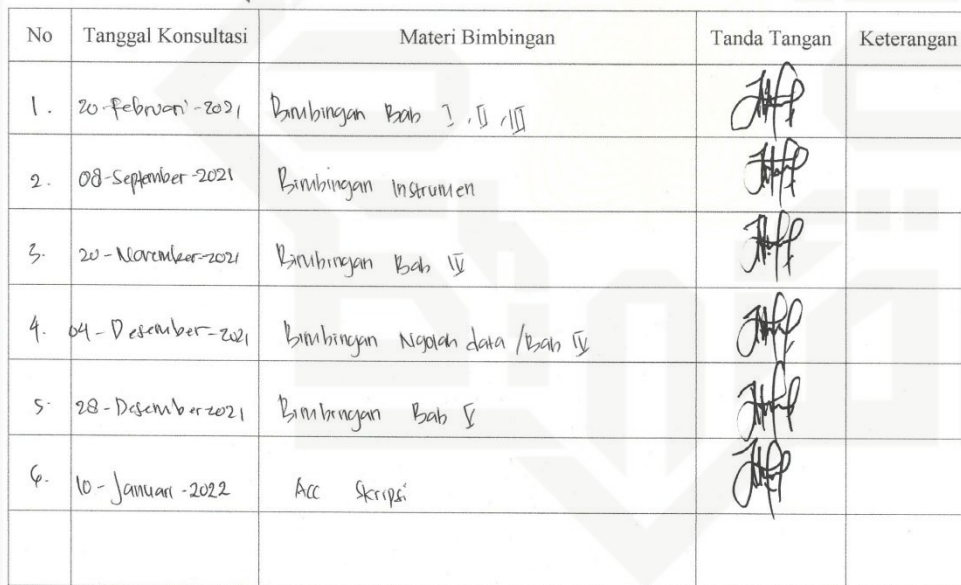 No Tanggal Konsultasi Materi Bimbingan Tanda Tangan Keterangan
1. 20-Februari-2021 Bimbingan Bab I, II, III
2. 08-September-2021 Bimbingan Instrumen
3. 20-November-2021 Bimbingan Bab IV
4. 04-Desember-2021 Bimbingan Ngolah data/Bab IV
5. 28-Desember 2021 Bimbingan Bab V
6. 10-Januari-2022 Acc Skripsi